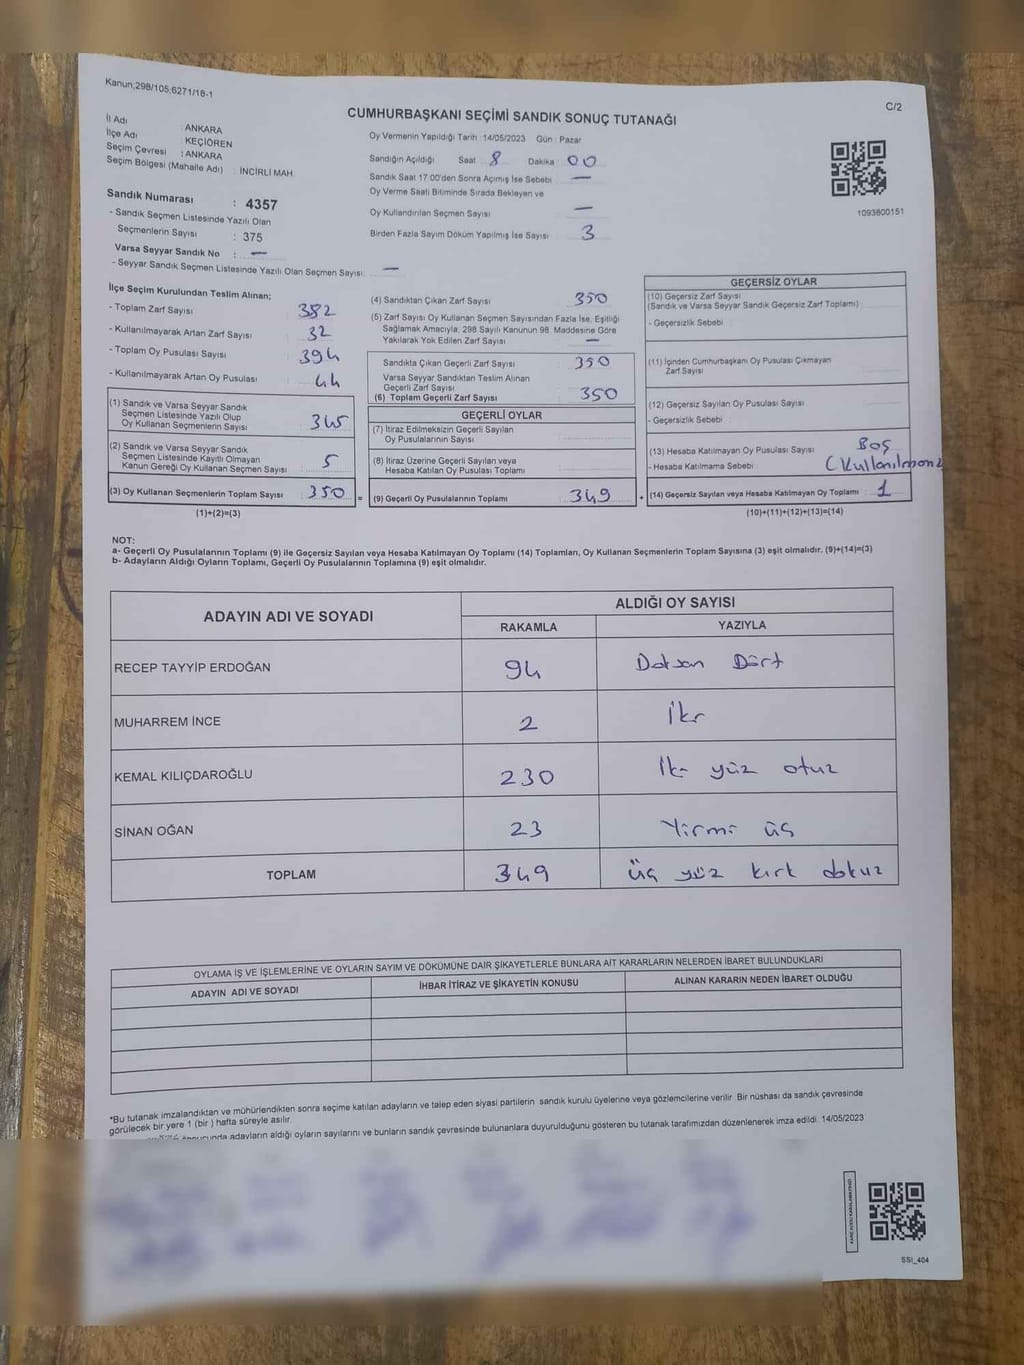 Kanun;298/105,6271/18-1
C/2
CUMHURBAŞKANI SEÇİMİ SANDIK SONUÇ TUTANAĞI
İl Adı : ANKARA
İlçe Adı : KEÇİÖREN
Seçim Çevresi : ANKARA
Seçim Bölgesi (Mahalle Adı) : İNCİRLİ MAH.
Sandık Numarası : 4357
- Sandık Seçmen Listesinde Yazılı Olan
Seçmenlerin Sayısı : 375
Varsa Seyyar Sandık No : —
- Seyyar Sandık Seçmen Listesinde Yazılı Olan Seçmen Sayısı: —
Oy Vermenin Yapıldığı Tarih :14/05/2023 Gün : Pazar
Sandığın Açıldığı Saat 8 Dakika 00
Sandık Saat 17:00'den Sonra Açımış İse Sebebi —
Oy Verme Saati Bitiminde Sırada Bekleyen ve
Oy Kullandırılan Seçmen Sayısı —
Birden Fazla Sayım Döküm Yapılmış İse Sayısı 3
1093800151
İlçe Seçim Kurulundan Teslim Alınan;
- Toplam Zarf Sayısı 382
- Kullanılmayarak Artan Zarf Sayısı 32
- Toplam Oy Pusulası Sayısı 394
- Kullanılmayarak Artan Oy Pusulası 44
(1) Sandık ve Varsa Seyyar Sandık
Seçmen Listesinde Yazılı Olup
Oy Kullanan Seçmenlerin Sayısı 345
(2) Sandık ve Varsa Seyyar Sandık
Seçmen Listesinde Kayıtlı Olmayan
Kanun Gereği Oy Kullanan Seçmen Sayısı 5
(3) Oy Kullanan Seçmenlerin Toplam Sayısı 350 =
(1)+(2)=(3)
(4) Sandıktan Çıkan Zarf Sayısı 350
(5) Zarf Sayısı Oy Kullanan Seçmen Sayısından Fazla İse, Eşitliği
Sağlamak Amacıyla; 298 Sayılı Kanunun 98. Maddesine Göre
Yakılarak Yok Edilen Zarf Sayısı —
Sandıkta Çıkan Geçerli Zarf Sayısı 350
Varsa Seyyar Sandıktan Teslim Alınan
Geçerli Zarf Sayısı
(6) Toplam Geçerli Zarf Sayısı 350
GEÇERLİ OYLAR
(7) İtiraz Edilmeksizin Geçerli Sayılan
Oy Pusulalarının Sayısı
(8) İtiraz Üzerine Geçerli Sayılan veya
Hesaba Katılan Oy Pusulası Toplamı
(9) Geçerli Oy Pusulalarının Toplamı 349 +
GEÇERSİZ OYLAR
(10) Geçersiz Zarf Sayısı
(Sandık ve Varsa Seyyar Sandık Geçersiz Zarf Toplamı)
- Geçersizlik Sebebi :
(11) İçinden Cumhurbaşkanı Oy Pusulası Çıkmayan
Zarf Sayısı
(12) Geçersiz Sayılan Oy Pusulası Sayısı
- Geçersizlik Sebebi :
(13) Hesaba Katılmayan Oy Pusulası Sayısı Boş
- Hesaba Katılmama Sebebi :
(14) Geçersiz Sayılan veya Hesaba Katılmayan Oy Toplamı 1
(10)+(11)+(12)+(13)=(14)
NOT:
a- Geçerli Oy Pusulalarının Toplamı (9) ile Geçersiz Sayılan veya Hesaba Katılmayan Oy Toplamı (14) Toplamları, Oy Kullanan Seçmenlerin Toplam Sayısına (3) eşit olmalıdır. (9)+(14)=(3)
b- Adayların Aldığı Oyların Toplamı, Geçerli Oy Pusulalarının Toplamına (9) eşit olmalıdır.
ADAYIN ADI VE SOYADI
ALDIĞI OY SAYISI
RAKAMLA YAZIYLA
RECEP TAYYİP ERDOĞAN 94 Doksan Dört
MUHARREM İNCE 2 İki
KEMAL KILIÇDAROĞLU 230 İki yüz otuz
SİNAN OĞAN 23 Yirmi üç
TOPLAM 349 üç yüz kırk dokuz
OYLAMA İŞ VE İŞLEMLERİNE VE OYLARIN SAYIM VE DÖKÜMÜNE DAİR ŞİKAYETLERLE BUNLARA AİT KARARLARIN NELERDEN İBARET BULUNDUKLARI
ADAYIN ADI VE SOYADI İHBAR İTİRAZ VE ŞİKAYETİN KONUSU ALINAN KARARIN NEDEN İBARET OLDUĞU
*Bu tutanak imzalandıktan ve mühürlendikten sonra seçime katılan adayların ve talep eden siyasi partilerin sandık kurulu üyelerine veya gözlemcilerine verilir. Bir nüshası da sandık çevresinde
görülecek bir yere 1 (bir) hafta süreyle asılır.
adayların aldığı oyların sayılarını ve bunların sandık çevresinde bulunanlara duyurulduğunu gösteren bu tutanak tarafımızdan düzenlenerek imza edildi. 14/05/2023
SSI_404